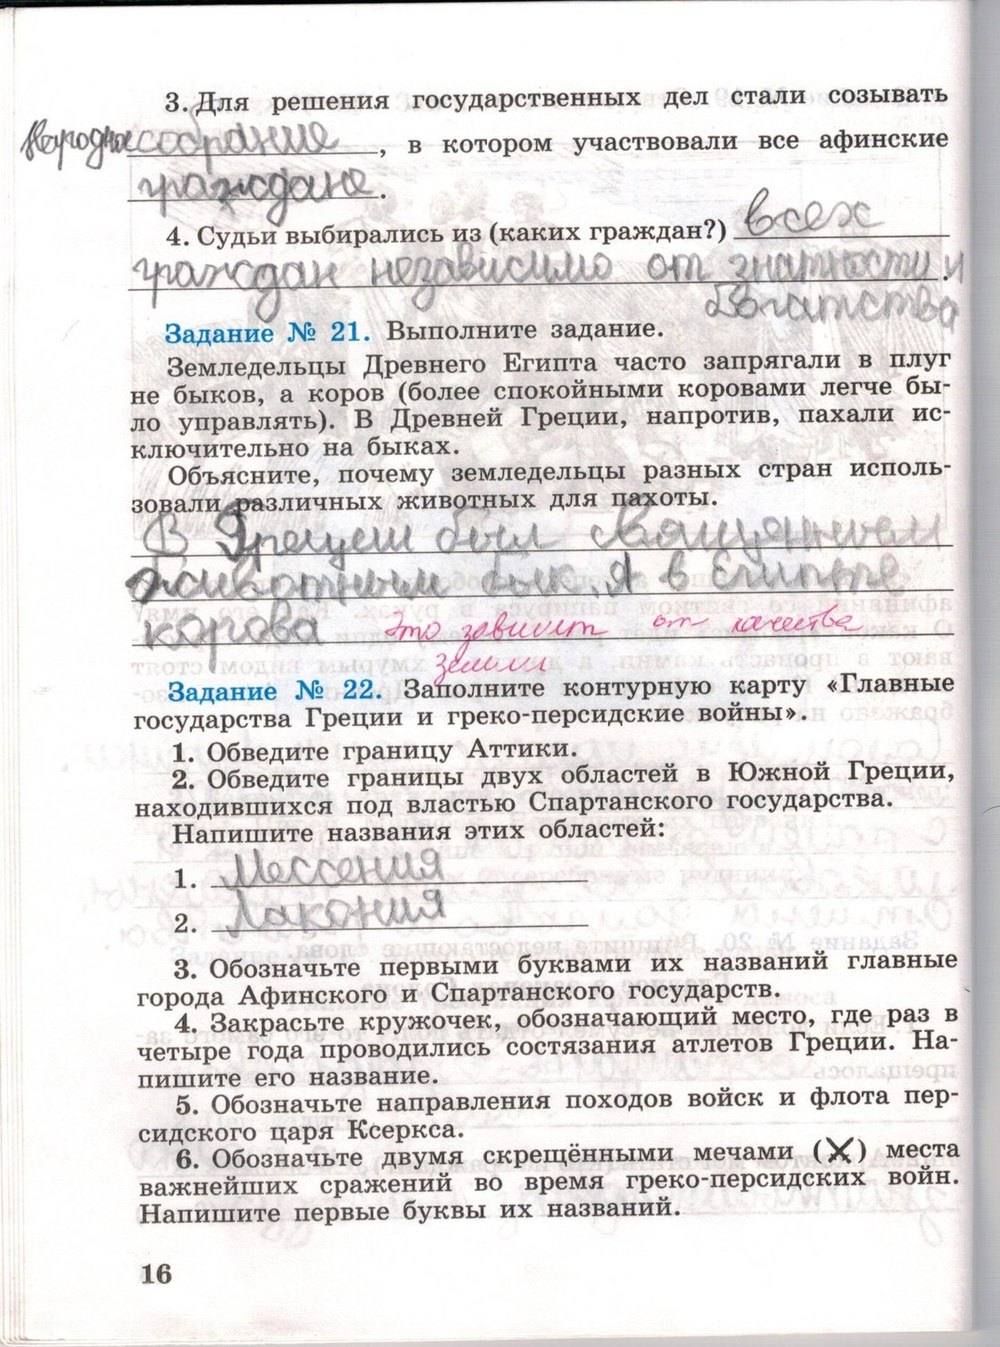 3. Для решения государственных дел стали созывать
Народное собрание, в котором участвовали все афинские
граждане.
4. Судьи выбирались из (каких граждан?) всех
граждан независимо от знатности и
богатства
Задание № 21. Выполните задание.
Земледельцы Древнего Египта часто запрягали в плуг
не быков, а коров (более спокойными коровами легче бы-
ло управлять). В Древней Греции, напротив, пахали ис-
ключительно на быках.
Объясните, почему земледельцы разных стран исполь-
зовали различных животных для пахоты.
В Греции был священным
животным бык. А в Египте
корова Это зависит от качества
земли
Задание № 22. Заполните контурную карту «Главные
государства Греции и греко-персидские войны».
1. Обведите границу Аттики.
2. Обведите границы двух областей в Южной Греции,
находившихся под властью Спартанского государства.
Напишите названия этих областей:
1. Мессения
2. Лакония
3. Обозначьте первыми буквами их названий главные
города Афинского и Спартанского государств.
4. Закрасьте кружочек, обозначающий место, где раз в
четыре года проводились состязания атлетов Греции. На-
пишите его название.
5. Обозначьте направления походов войск и флота пер-
сидского царя Ксеркса.
6. Обозначьте двумя скрещёнными мечами (X) места
важнейших сражений во время греко-персидских войн.
Напишите первые буквы их названий.
16